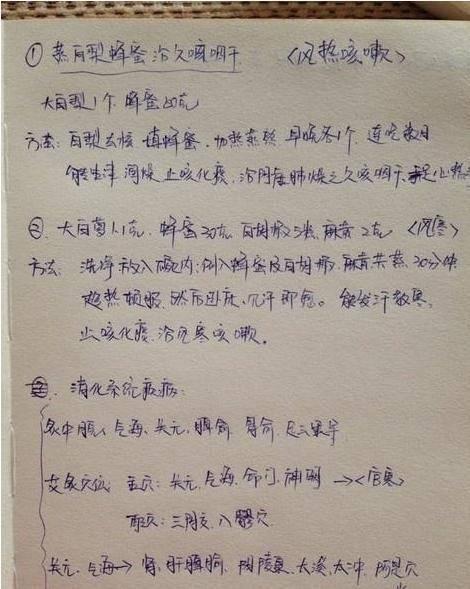 ① 蒸白梨蜂蜜治久咳咽干 〈风热咳嗽〉
大白梨1个 蜂蜜50克
方法: 白梨去核 填蜂蜜. 加热蒸熟 早晚各1个. 连吃数日
能生津 润燥 止咳化痰. 治阴虚肺燥之久咳咽干. 手足心热
② 大白萝1个. 蜂蜜30克 白胡椒5粒. 麻黄2克 〈风寒〉
方法: 洗净 放入碗内: 倒入蜂蜜及白胡椒. 麻黄共蒸 30分钟
趁热顿服. 然后卧床. 见汗即愈。能发汗散寒.
止咳化痰. 治风寒咳嗽.
消化系统疾病:
灸中脘. 气海. 关元. 脾俞. 胃俞. 足三里
艾灸穴位 主穴: 关元. 气海. 命门. 神阙 →〈宫寒〉
配穴: 三阴交. 八髎穴
关元. 气海→ 肾. 肝脾俞. 阳陵泉. 太溪. 太冲. 阿是穴